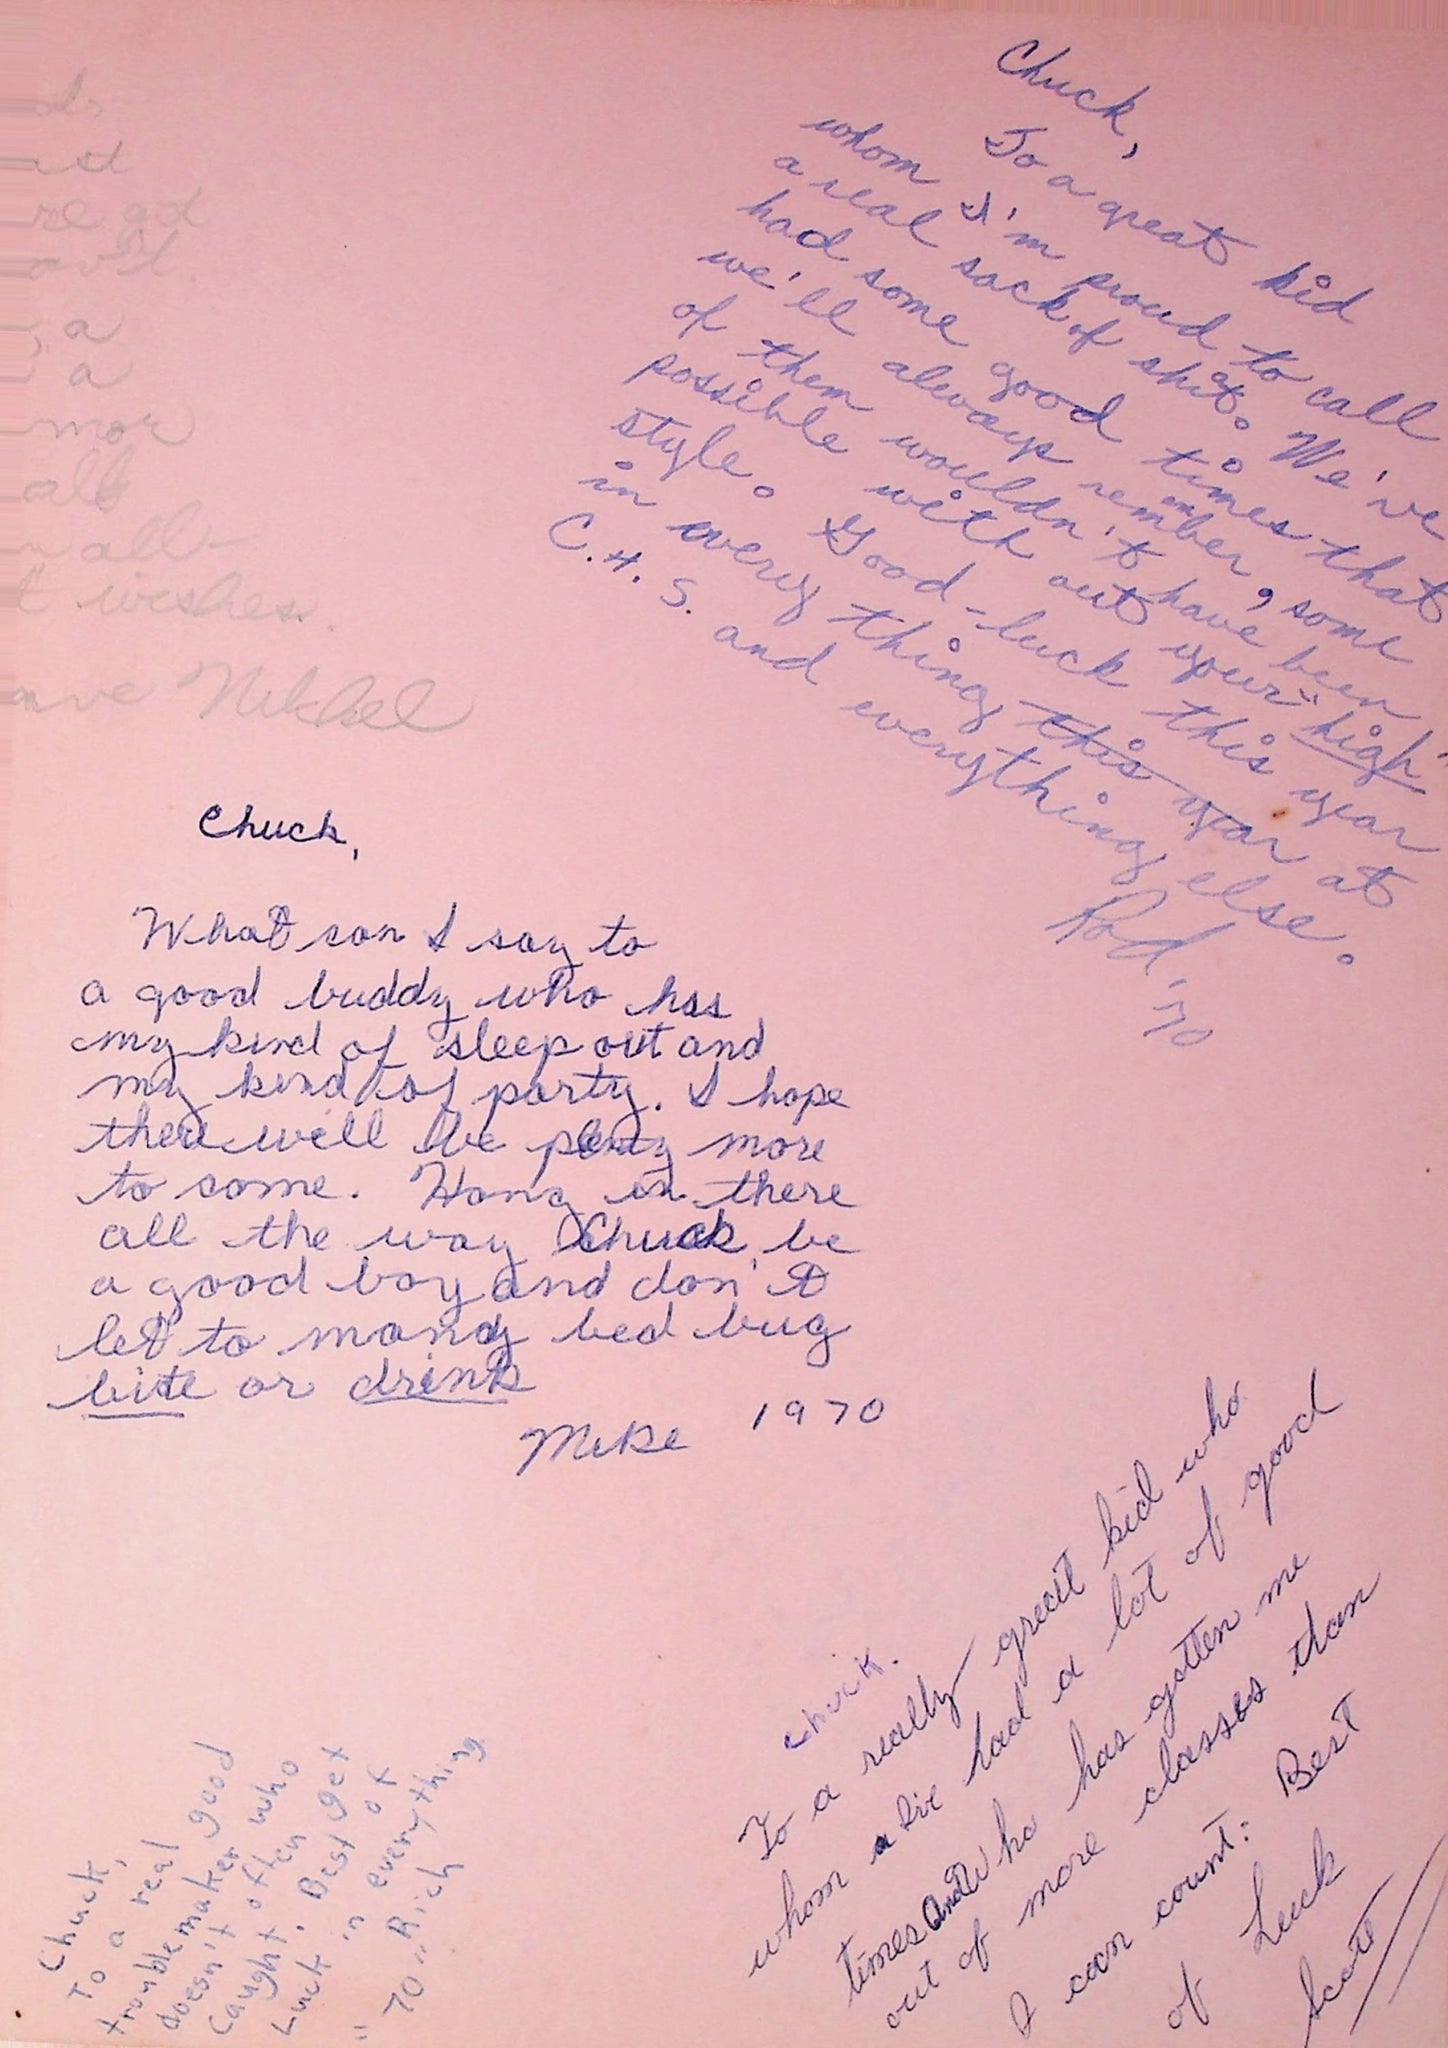 re gd
, a
a
mor
all
all-
t wishes.
ave Nikkel
Chuck,
To a great kid
whom I'm proud to call
a real sack of shit. We've
had some good times that
we'll always remember, some
of them wouldn't have been
possible with out your "high"
style. Good-luck this year
in every thing this year at
C.H.S. and everything else.
Rod '70
Chuck,
What can I say to
a good buddy who has
my kind of sleep out and
my kind of party. I hope
there will be plenty more
to come. Hang in there
all the way Chuck, be
a good boy and don't
let to many bed bug
bite or drink
Mike 1970
Chuck,
To a real good
troublemaker who
doesn't often get
caught. Best of
Luck in everything
"70" Rich
Chuck.
To a really great kid who
whom I've had a lot of good
times and who has gotten me
out of more classes than
I can count. Best
of Luck
Scott